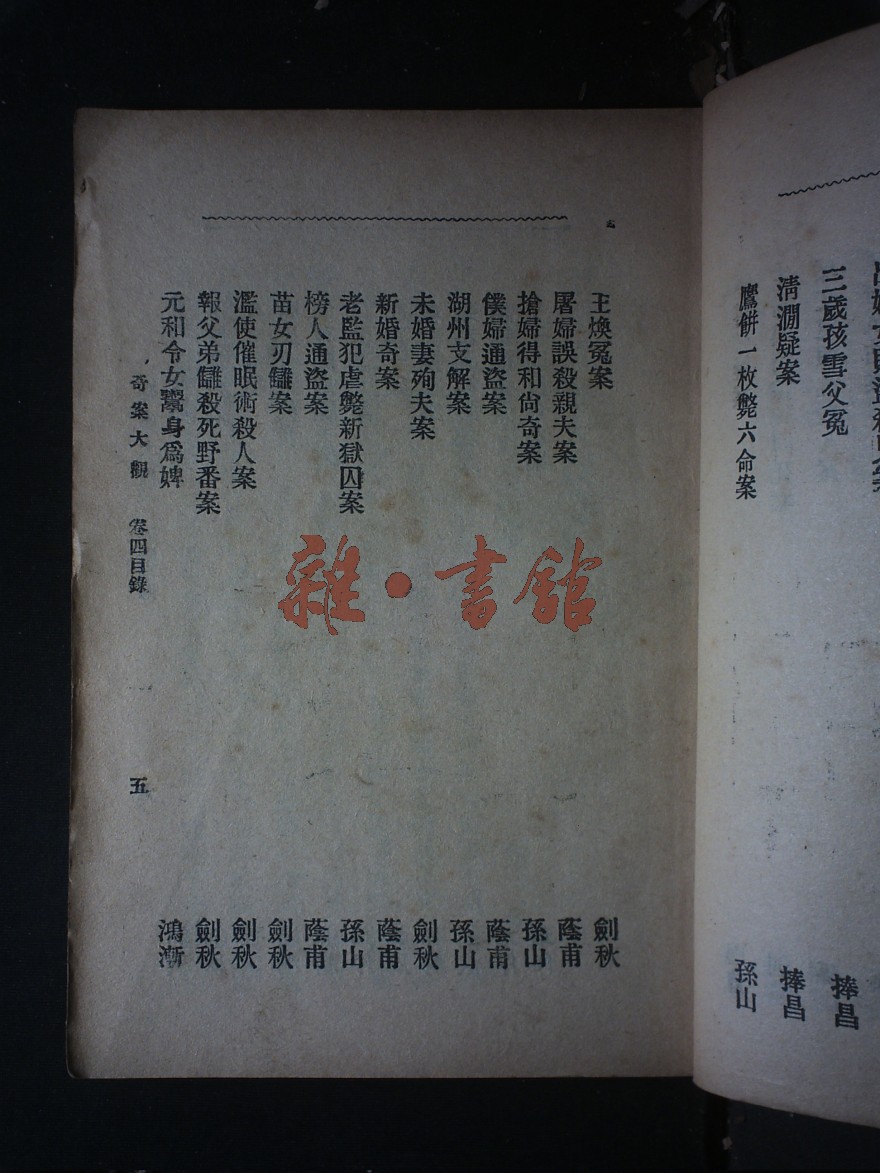 三歲孩雪父冤 捧昌
清澗疑案 捧昌
鷹餅一枚斃六命案 孫山
王煥冤案 劍秋
屠婦誤殺親夫案 蔭甫
搶婦得和尙奇案 孫山
僕婦通盜案 蔭甫
湖州支解案 孫山
未婚妻殉夫案 劍秋
新婚奇案 蔭甫
老監犯虐斃新獄囚案 孫山
榜人通盜案 蔭甫
苗女刃讎案 劍秋
濫使催眠術殺人案 劍秋
報父弟讎殺死野番案 劍秋
元和令女鬻身爲婢 鴻漸
奇案大觀 卷四目錄 五
雜·書館